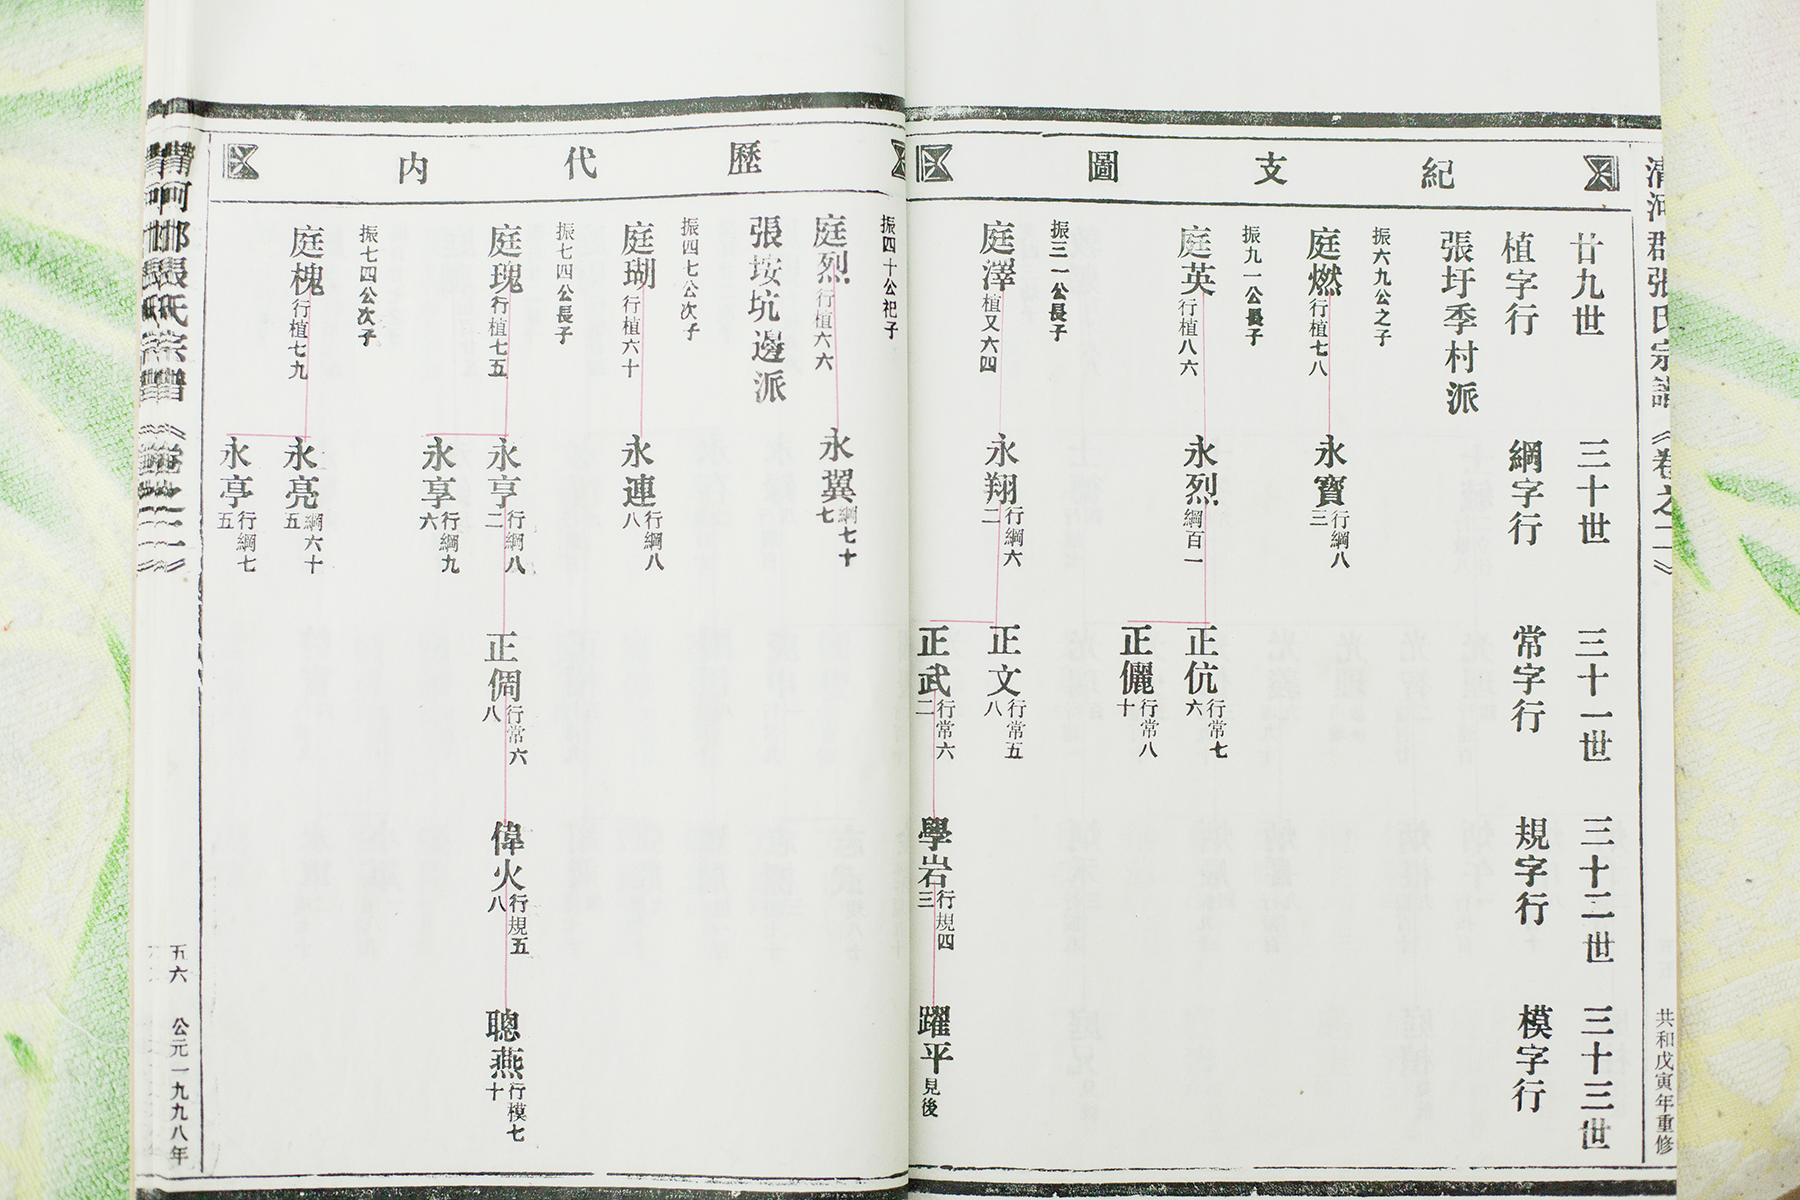 清河郡張氏宗譜《卷之二》
共和戊寅年重修
紀支圖
廿九世
三十世
三十一世
三十二世
三十三世
植字行
綱字行
常字行
規字行
模字行
張圩季村派
振六九公之子
庭燃行植七八
永寶行綱八三
振九一公長子
庭英行植八六
永烈綱百一
正伉行常七六
正儷行常八十
振三一公長子
庭澤植又六四
永翔行綱六二
正文行常五八
正武行常六二
學岩行規四三
躍平見後
歷代內
振四十公祀子
庭烈行植六六
永翼綱七十七
張垵坑邊派
振四七公次子
庭瑚行植六十
永連行綱八八
振七四公長子
庭瑰行植七五
永亨行綱八二
正倜行常六八
偉火行規五八
聰燕行模七十
永享行綱九六
振七四公次子
庭槐行植七九
永亮綱六十五
永亭行綱七五
清河郡張氏宗譜《卷之二》
五六
公元一九九八年